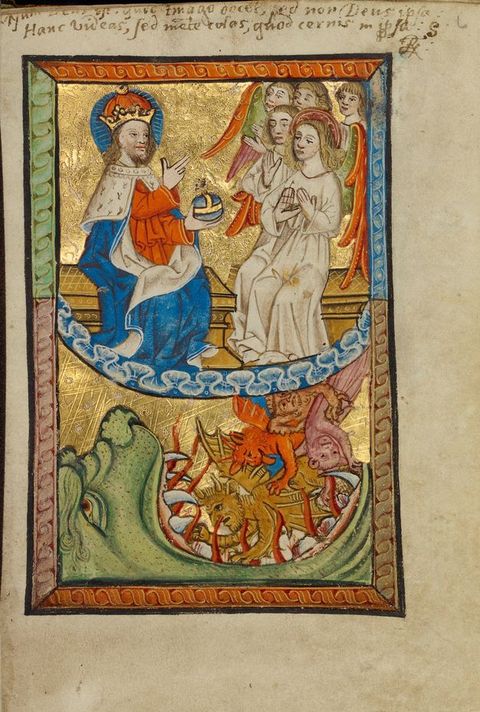 Nam Deus est. quod Imago docet, sed non Deus ipsa
Hanc Videas, sed mẽte colas, quod cernis in ipsa.